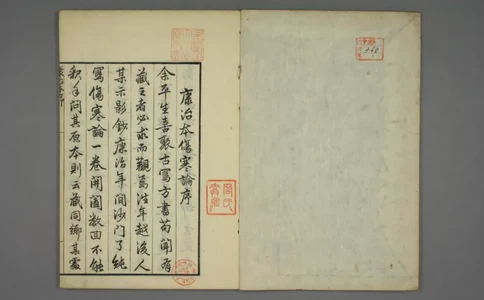 康治本傷寒論序
余平生喜聚古寫方書苟聞有
藏之者必求而觀焉往年越後人
某示影鈔康治年間沙門了純
寫傷寒論一卷開闔數四不能
釋手問其原本則云藏同鄉某家